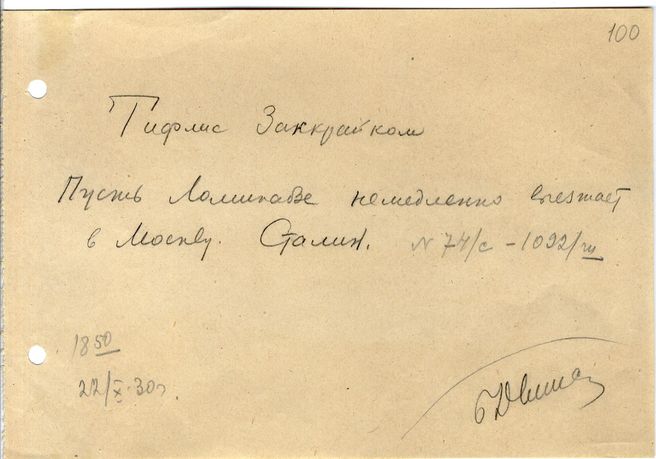 100
Тифлис Заккрайком
Пусть Ломинадзе немедленно выезжает
в Москву. Сталин. N 74/с - 1092/ш
18 50
22/X-30г.